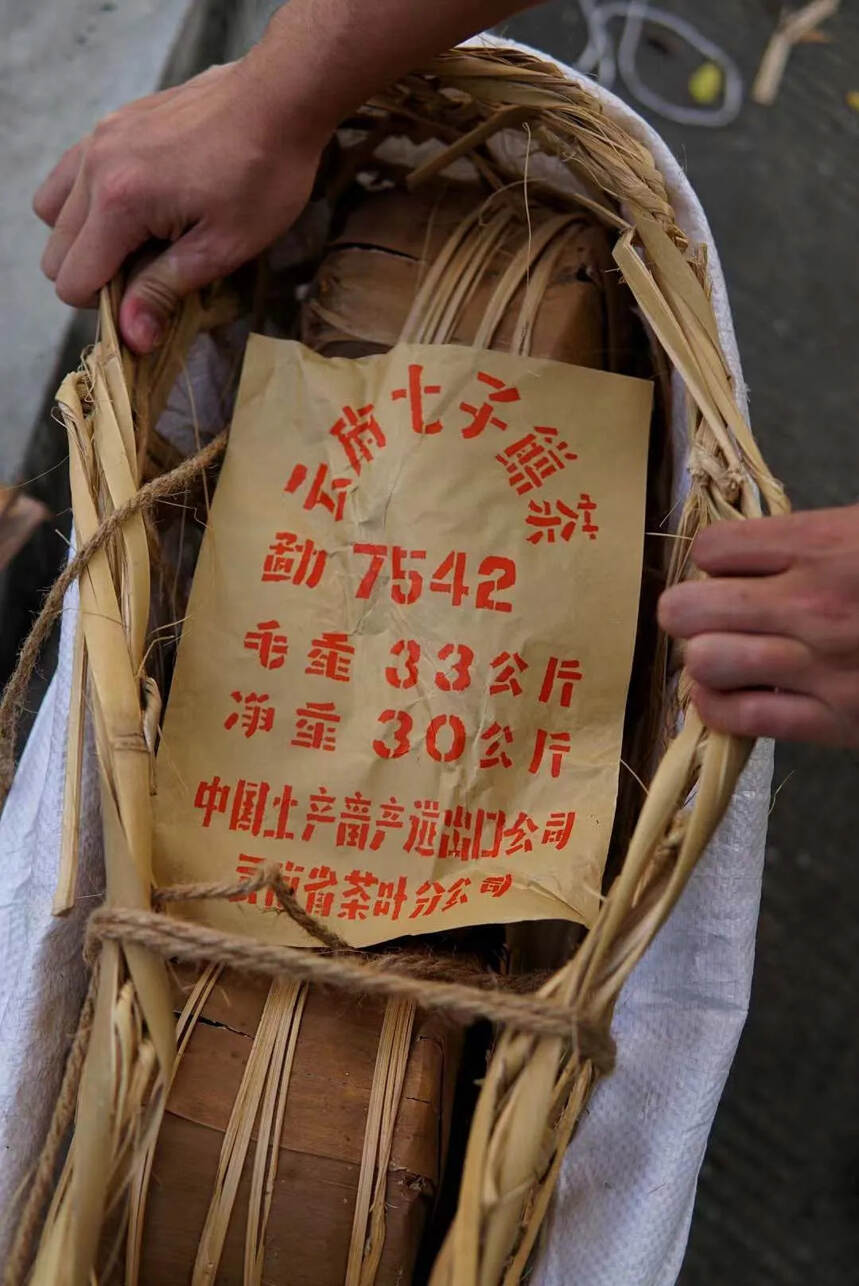 云南七子饼茶
勐 7542
毛重 33公斤
净重 30公斤
中国土产畜产进出口公司
云南省茶叶分公司